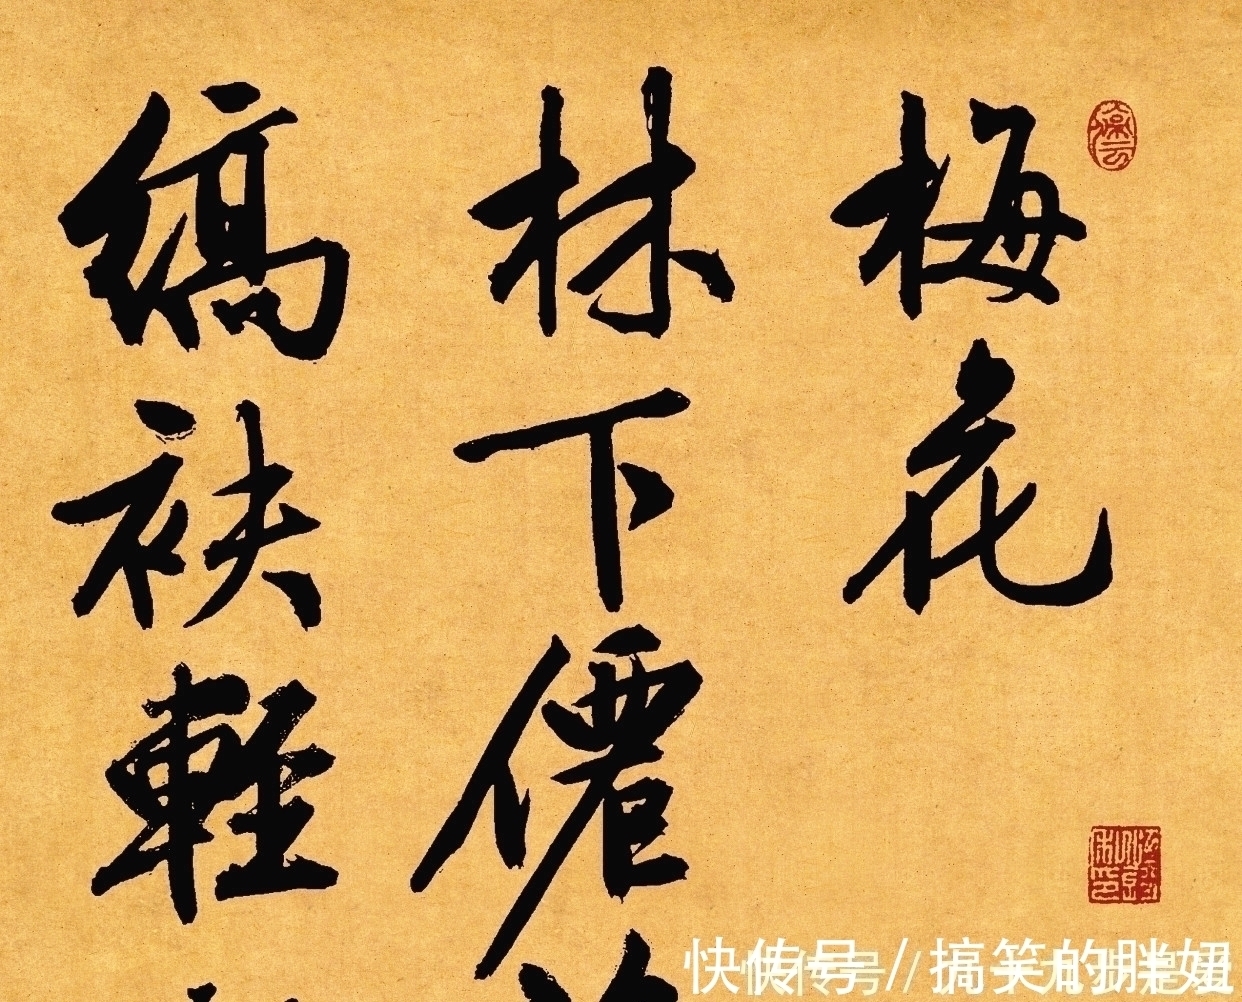 梅花
林下僊
縞袂輕
快传号 // 搞笑的胖妞